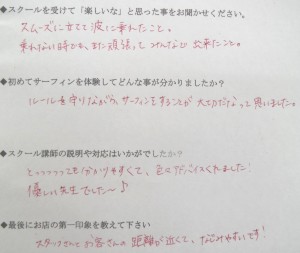 ◆スクールを受けて「楽しいな」と思った事をお聞かせください。
スムーズに立てて波に乗れたこと。
乗れない時でも、また頑張ってみんなと出来たこと。
◆初めてサーフィンを体験してどんな事が分かりましたか?
ルールを守りながら、サーフィンをすることが大切だなって思いました。
◆スクール講師の説明や対応はいかがでしたか?
とっっっっても分かりやすくて、色々アドバイスくれました!
優しい先生でした〜♪
◆最後にお店の第一印象を教えて下さい
スタッフさんとお客さんの距離が近くて、なじみやすいです!